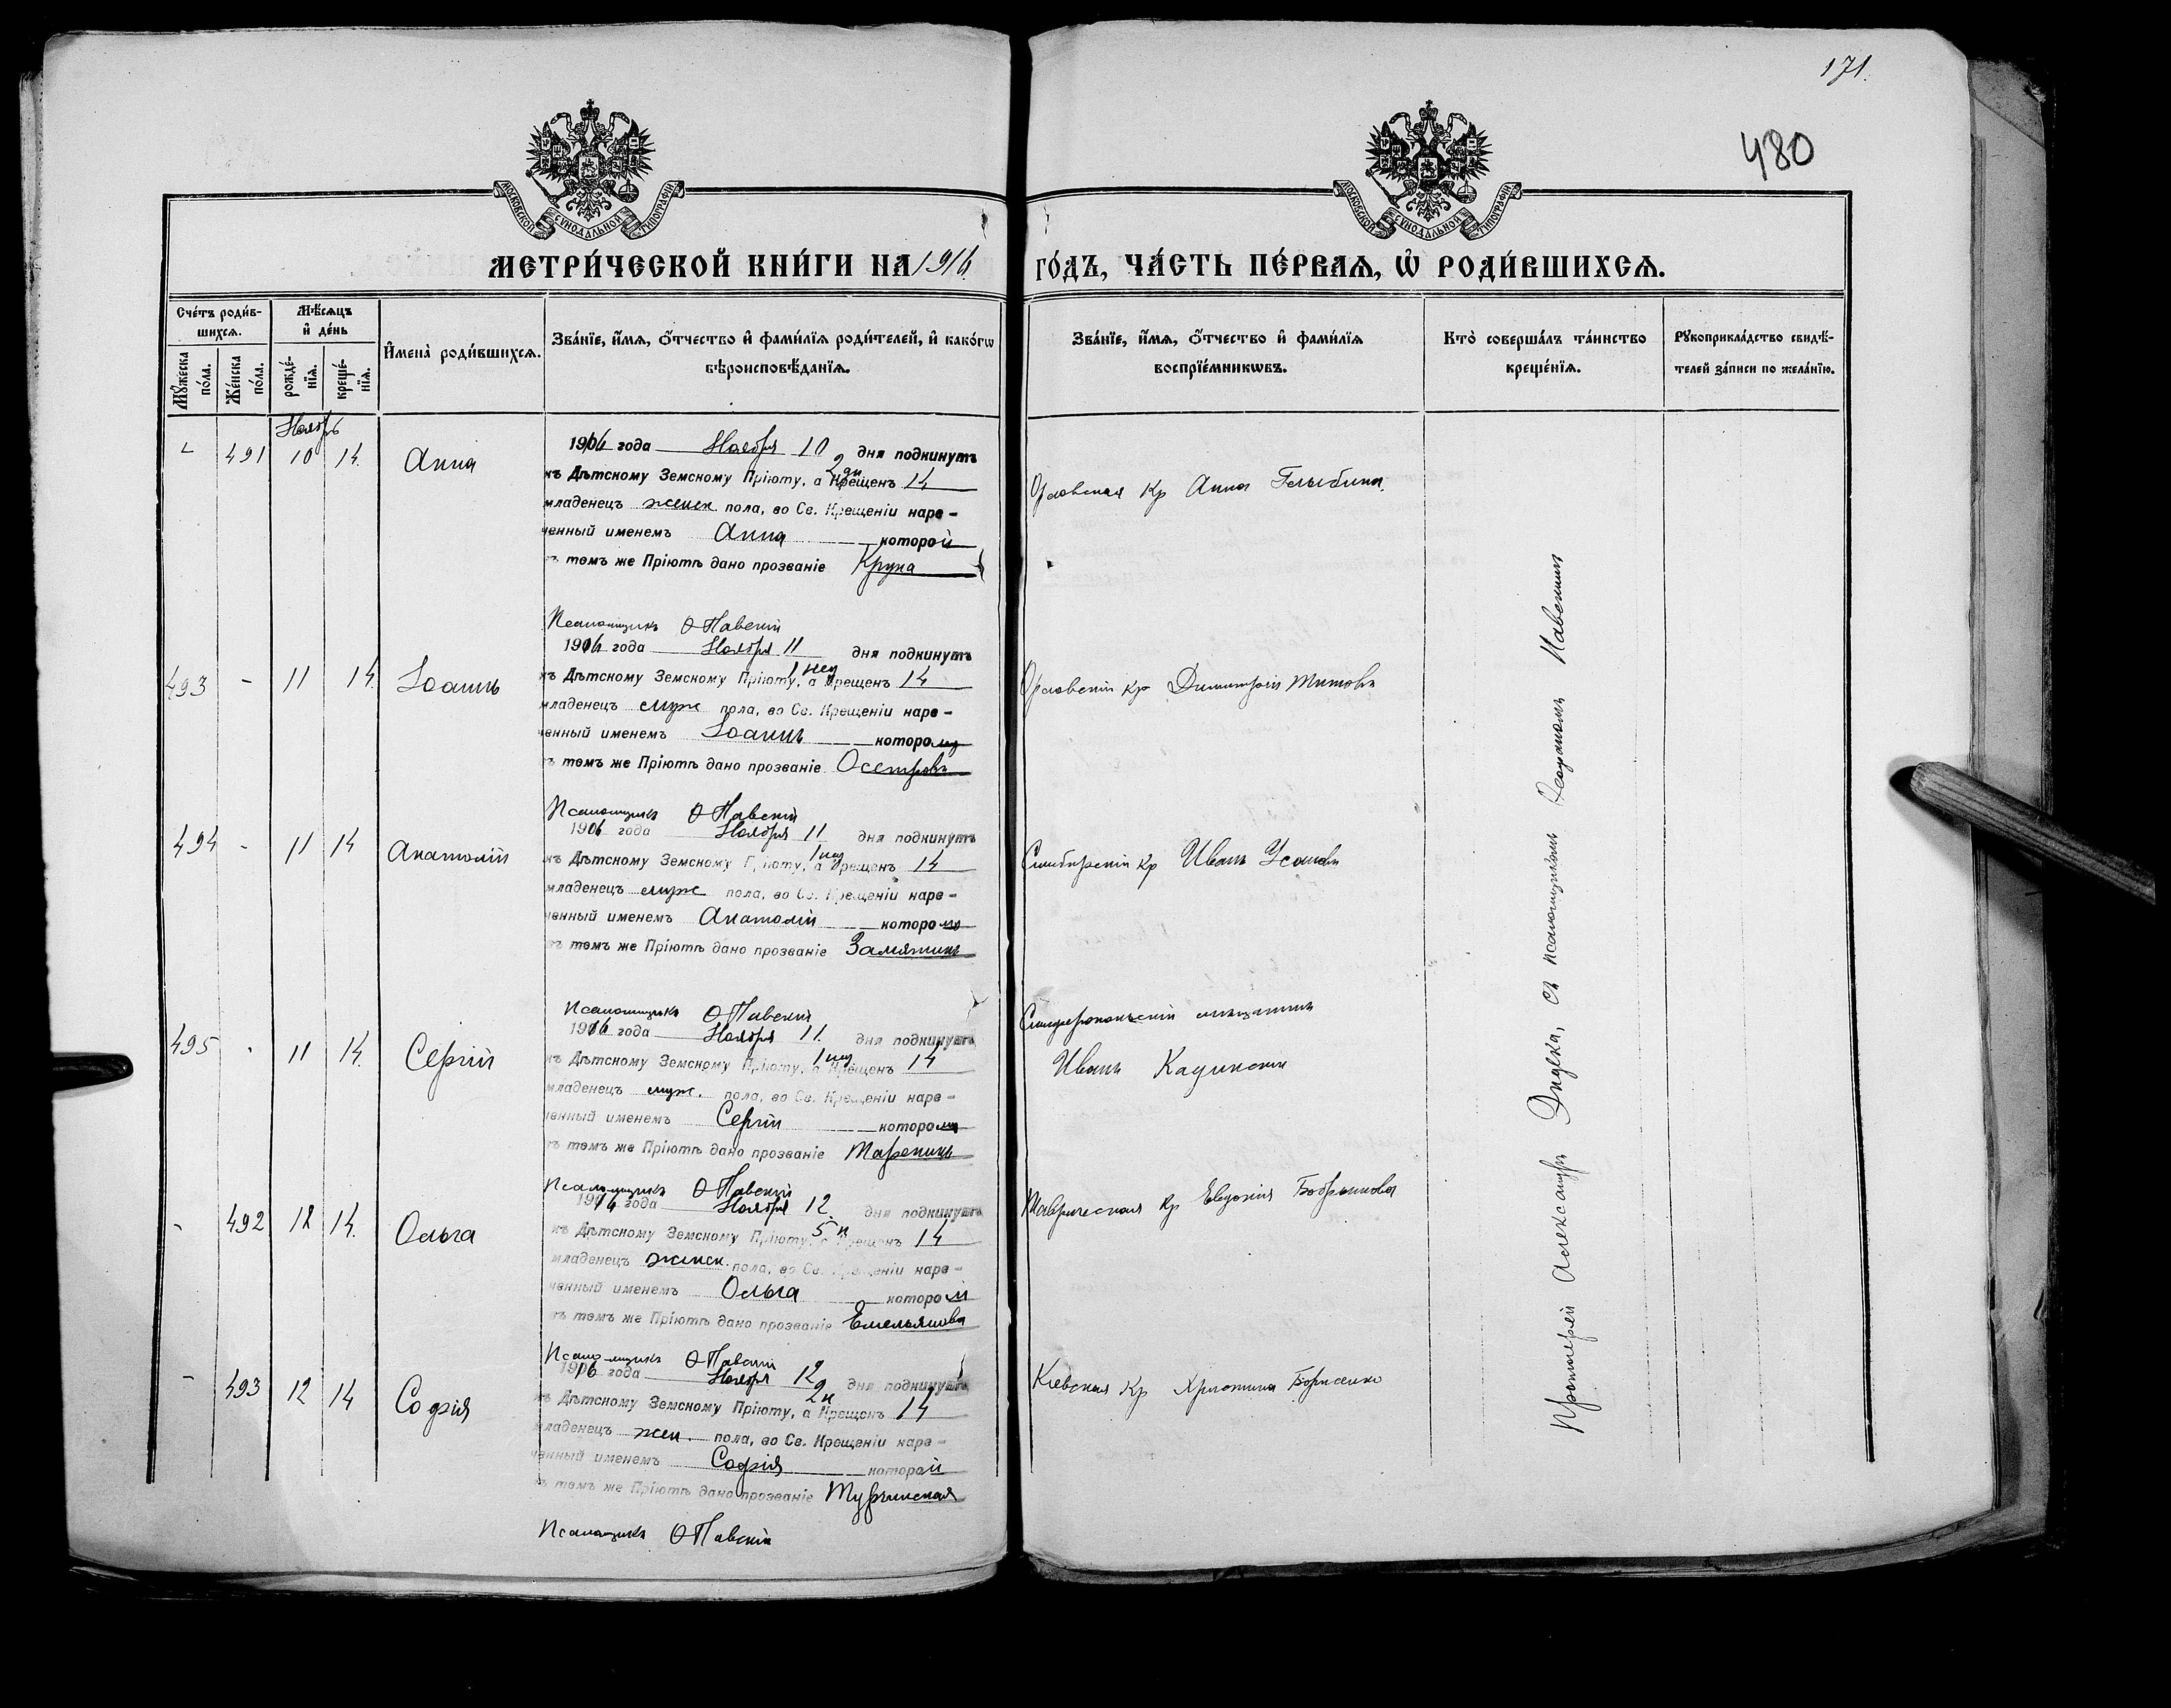 171.
480
МОСКОВСКОЙ СѴНОДАЛЬНОЙ ТИПОГРАФІИ
МОСКОВСКОЙ СѴНОДАЛЬНОЙ ТИПОГРАФІИ
МЕТРИ́ЧЕСКОЙ КНИ́ГИ НА 1916 ГО́ДЪ, ЧА́СТЬ ПЕ́РВАѦ, Ѽ РОДИ́ВШИХСѦ.
Сче́тъ роди́в-
шихсѧ.
Мꙋ́жеска
по́ла.
Же́нска
по́ла.
Мѣ́сѧцъ
и҆ де́нь
рожде́-
нїѧ.
креще́-
нїѧ.
И҆мена̀ роди́вшихсѧ.
Зва́нїе, и҆́мѧ, ѻ҆́тчество и҆ фами́лїѧ роди́телей, и҆ како́гѡ
вѣроисповѣ́данїѧ.
Зва́нїе, и҆́мѧ, ѻ҆́тчество и҆ фами́лїѧ
воспрїе́мникѡвъ.
Кто̀ соверша́лъ та́инство
креще́нїѧ.
Рꙋкоприкла́дство свидѣ́-
телей за́писи по жела́нїю.
Ноябрь
- 491 10 14. Анна
1916 года Ноября 10 дня подкинутъ
2 дн
къ Дѣтскому Земскому Пріюту, а Крещенъ 14
младенецъ женск пола, во Св. Крещеніи наре-
ченный именемъ Анна которой
въ томъ же Пріютѣ дано прозваніе Крупа
Псаломщикъ Ѳ Павскій
Орловская Кр Анна
493 - 11 14. Іоаннъ
1916 года Ноября 11 дня подкинутъ
1 нед
къ Дѣтскому Земскому Пріюту, а Крещенъ 14
младенецъ муж пола, во Св. Крещеніи наре-
ченный именемъ Іоаннъ которому
въ томъ же Пріютѣ дано прозваніе Осетровъ
Псаломщикъ Ѳ Павскій
Орловскій кр Димитрій Титовъ
494 - 11 14 Анатолій
1916 года Ноября 11 дня подкинутъ
1 нед
къ Дѣтскому Земскому Пріюту, а Крещенъ 14
младенецъ муж пола, во Св. Крещеніи наре-
ченный именемъ Анатолій которому
въ томъ же Пріютѣ дано прозваніе Замятинъ
Псаломщикъ Ѳ Павскій
Симбирскій Кр Иванъ
495 - 11 14. Сергій
1916 года Ноября 11. дня подкинутъ
1 нед
къ Дѣтскому Земскому Пріюту, а Крещенъ 14
младенецъ муж. пола, во Св. Крещеніи наре-
ченный именемъ Сергій которому
въ томъ же Пріютѣ дано прозваніе
Псаломщикъ Ѳ Павскій
Симферопольскій мѣщанинъ
Иванъ
- 492 12 14. Ольга
1916 года Ноября 12. дня подкинутъ
5 н
къ Дѣтскому Земскому Пріюту, а Крещенъ 14
младенецъ женск. пола, во Св. Крещеніи наре-
ченный именемъ Ольга которой
въ томъ же Пріютѣ дано прозваніе Емельянова
Псаломщикъ Ѳ Павскій
Таврическая Кр Евдокія
- 493 12 14 Софія
1916 года Ноября 12 дня подкинутъ
2 н
къ Дѣтскому Земскому Пріюту, а Крещенъ 14
младенецъ жен. пола, во Св. Крещеніи наре-
ченный именемъ Софія которой
въ томъ же Пріютѣ дано прозваніе
Псаломщикъ Ѳ Павскій
Кіевская Кр Христина Борисенко
Протоіерей Александръ съ псаломщикомъ Ѳеофаномъ Павскимъ